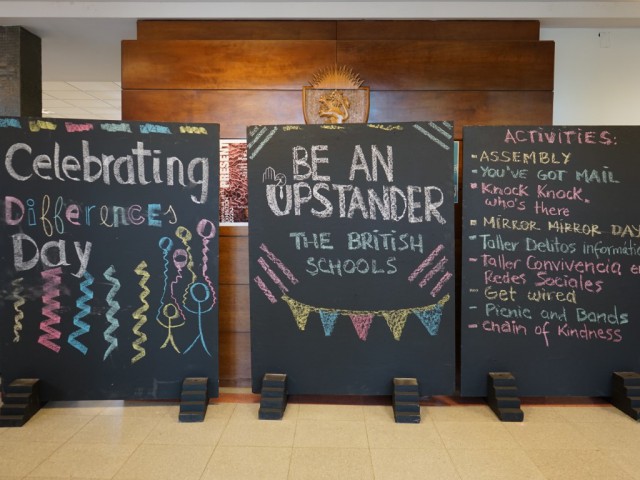 Celebrating
Differences
Day
BE AN
UPSTANDER
THE BRITISH
SCHOOLS
ACTIVITIES:
- ASSEMBLY
- YOU'VE GOT MAIL
- KNOCK KNOCK.
WHO'S THERE
- MIRROR MIRROR DAY
- Taller Delitos informátic
- Taller Convivencia en
Redes Sociales
- Get wired
- Picnic and Bands
- chain of Kindness